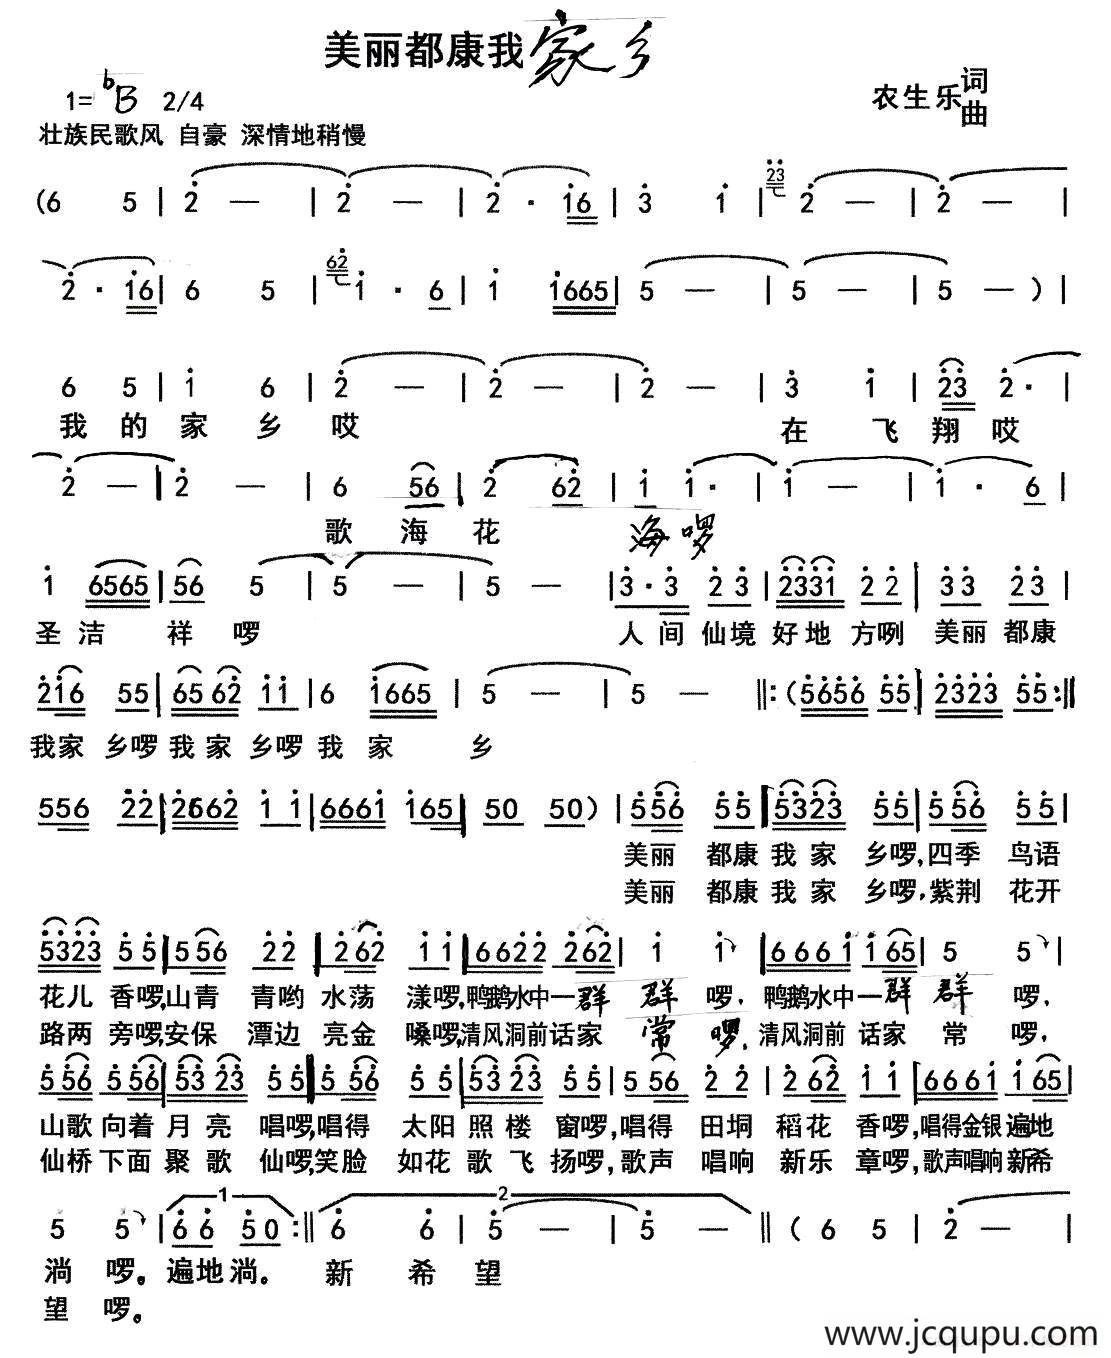 美丽都康我家乡
1=♭B 2/4
农生乐词曲
壮族民歌风 自豪 深情地稍慢
(6 5 | 2 — | 2 — | 2 · 16 | 3 1 | 23 2 — | 2 — |
2 · 16 | 6 5 | 62 1 · 6 | 1 1665 | 5 — | 5 — | 5 — ) |
6 5 | 1 6 | 2 — | 2 — | 2 — | 3 1 | 23 2 · |
我的家乡哎 在飞翔哎
2 — | 2 — | 6 56 | 2 62 | 1 1 · | 1 — | 1 · 6 |
歌海花 海啰
1 6565 | 56 5 | 5 — | 5 — | 3 · 3 23 | 2331 22 | 33 23 |
圣洁祥啰 人间仙境好地方咧 美丽都康
216 55 | 6562 11 | 6 1665 | 5 — | 5 — ‖: (5656 55 | 2323 55 :‖
我家乡啰我家乡啰我家乡
556 22 | 2662 11 | 6661 165 | 50 50 ) | 556 55 | 5323 55 | 556 55 |
美丽都康我家乡啰,四季鸟语
美丽都康我家乡啰,紫荆花开
5323 55 | 556 22 | 262 11 | 6622 262 | 1 1 | 6661 165 | 5 5 |
花儿香啰,山青青哟水荡漾啰,鸭鹅水中一群群啰,鸭鹅水中一群群啰,
路两旁啰,安保潭边亮金嗓啰,清风洞前话家常啰,清风洞前话家常啰,
556 556 | 5323 55 | 556 55 | 5323 55 | 556 22 | 262 11 | 6661 165 |
山歌向着月亮唱啰,唱得太阳照楼窗啰,唱得田垌稻花香啰,唱得金银遍地
仙桥下面聚歌仙啰,笑脸如花歌飞扬啰,歌声唱响新乐章啰,歌声唱响新希
1 2
5 5 | 66 50 :‖ 6 6 | 5 — | 5 — ‖ ( 6 5 | 2 — |
淌啰。遍地淌。新希望
望啰。
www.jcqupu.com